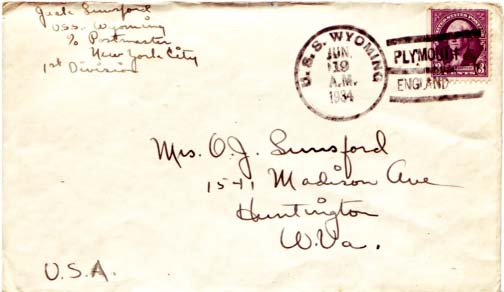 Jack Lunsford
USS. Wyoming
℅ Postmaster
New York City
1st Division
U.S.S. WYOMING
JUN.
19
A.M.
1934
PLYMOUTH
ENGLAND
CENTS
Mrs. O.J. Lunsford
1541 Madison Ave
Huntington
W.Va.
U.S.A.